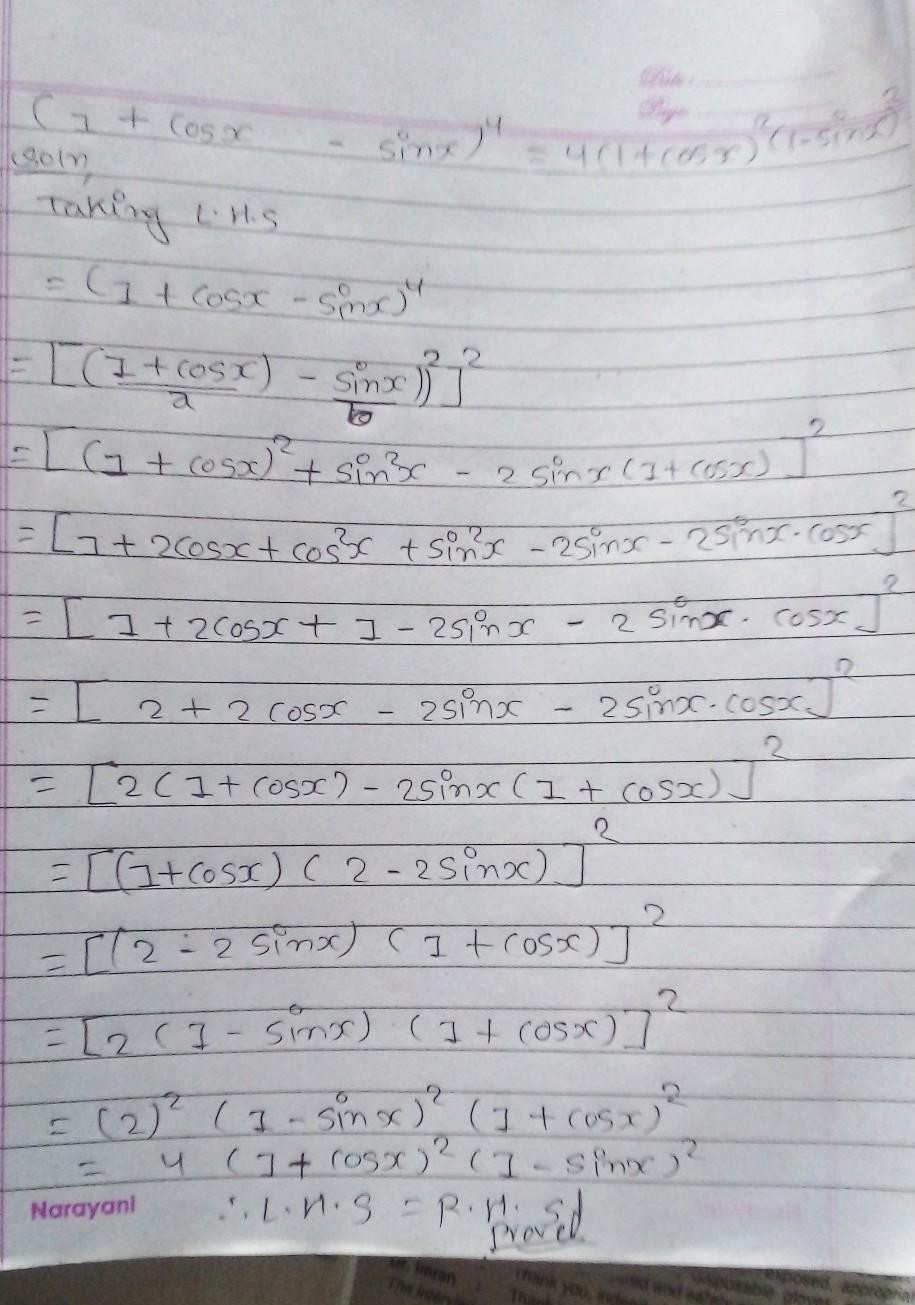 Date
Page
(1 + cosx - sinx)⁴ = 4(1+cosx)²(1-sinx)²
Soln,
Taking L.H.S
= (1 + cosx - sinx)⁴
= [(1 + cosx) - sinx))²]²
a b
= [(1 + cosx)² + sin²x - 2 sinx (1+ cosx)]²
= [1 + 2cosx + cos²x + sin²x - 2sinx - 2sinx.cosx]²
= [1 + 2cosx + 1 - 2sinx - 2 sinx. cosx]²
= [2 + 2 cosx - 2sinx - 2sinx.cosx]²
= [2(1+ cosx) - 2sinx (1 + cosx)]²
= [(1+cosx) (2 - 2sinx)]²
= [(2 - 2 sinx) (1 + cosx)]²
= [2 (1 - sinx) (1 + cosx)]²
= (2)² (1 - sinx)² (1 + cosx)²
= 4 (1+ cosx)² (1 - sinx)²
Narayani ∴ L.H.S = R.H.S
proved